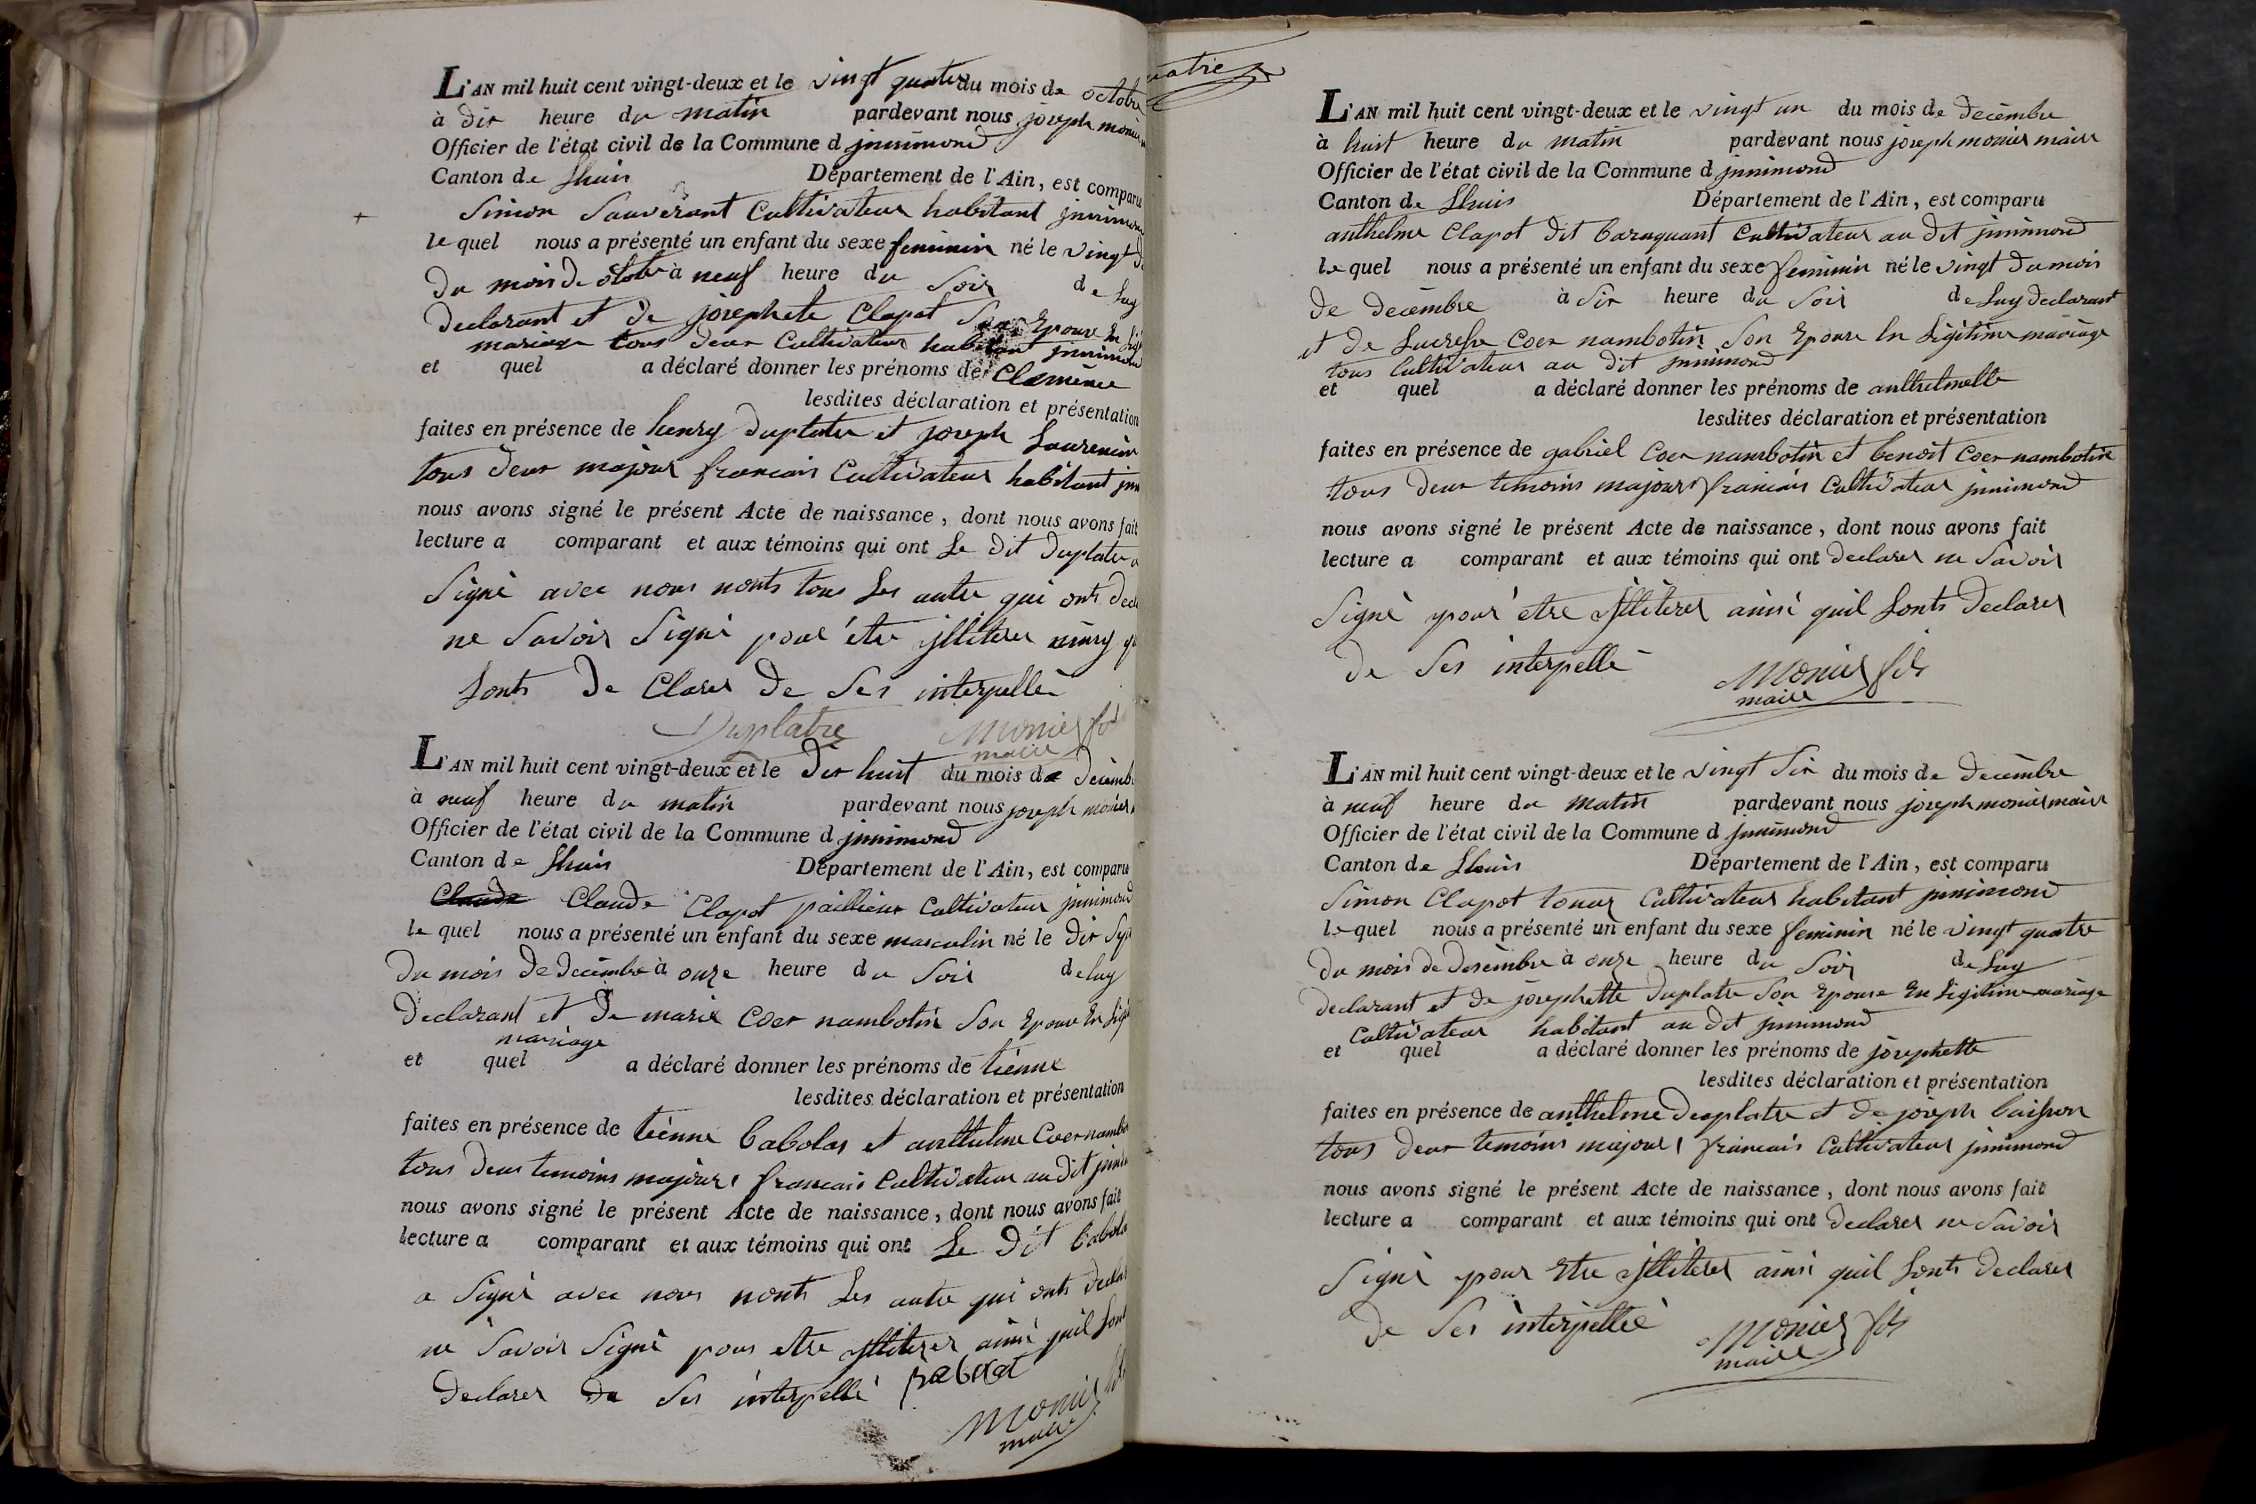 L'AN mil huit cent vingt-deux et le vingt quatre du mois de octobre
à dix heure du matin pardevant nous joseph monier
Officier de l'état civil de la Commune d jnnimond
Canton de Lhuis Département de l'Ain, est comparu
Simon Sauverant Cultivateur habitant jnnimond
le quel nous a présenté un enfant du sexe feminin né le vingt
du mois de octobre à neuf heure du Soir de Luy
declarant et de josephete Clapot Son Epouse En
mariage tous deux Cultivateur habitant jnnimond
et quel a déclaré donner les prénoms de Clemence
lesdites déclaration et présentation
faites en présence de henry Duplatre et joseph Laurencin
tous deux majour francais Cultivateur habitant
nous avons signé le présent Acte de naissance, dont nous avons fait
lecture a comparant et aux témoins qui ont Le dit Duplatre a
Signé avec nous nonts tous Les autre qui onts
ne Savoir Signé pour être jlliterer
Lonts de Clarer de Ses interpellé
Duplatre Monier fils
maire
L'AN mil huit cent vingt-deux et le dix huit du mois de Décemb
à neuf heure du matin pardevant nous joseph monier
Officier de l'état civil de la Commune d jnnimond
Canton de Lhuis Département de l'Ain, est comparu
Claude Claude Clapot paillieur Cultivateur jnnimond
le quel nous a présenté un enfant du sexe masculin né le Dix
du mois de decembre à onze heure du Soir de luy
Declarant et De marie Coer nambotin Son Epouse En
mariage
et quel a déclaré donner les prénoms de tiénne
lesdites déclaration et présentation
faites en présence de tiénne babolas et anthelme Coer nambo
tous deux temoins majours francais Cultivateur au dit
nous avons signé le présent Acte de naissance, dont nous avons fait
lecture a comparant et aux témoins qui ont Le Dit babola
a Signé avec nous nonts Les autre qui onts
ne Savoir Signé pour etre jlliterer ainsi quil Lont
declarer de Ses interpellé
Monier
maire
uatre
L'AN mil huit cent vingt-deux et le vingt un du mois de decémbre
à huit heure du matin pardevant nous joseph monier maire
Officier de l'état civil de la Commune d jnnimond
Canton de Lhuis Département de l'Ain, est comparu
anthelme Clapot dit baraquant Cultivateur au dit jnnimond
le quel nous a présenté un enfant du sexe feminin né le vingt du mois
de decémbre à Six heure du Soir de Luy declarant
et de Lucresse Coer nambotin Son Epouse En Ligitime mariage
tous Cultivateur au dit jnnimond
et quel a déclaré donner les prénoms de anthelmette
lesdites déclaration et présentation
faites en présence de gabriel Coer nambotin et benoit Coer nambotin
tous deux temoins majours francais Cultivateur jnnimond
nous avons signé le présent Acte de naissance, dont nous avons fait
lecture a comparant et aux témoins qui ont declarer ne Savoir
Signé pour etre jlliterer ainsi quil Lonts declarer
de Ses interpellé
Monier fils
maire
L'AN mil huit cent vingt-deux et le vingt Six du mois de decémbre
à neuf heure du matin pardevant nous joseph monier maire
Officier de l'état civil de la Commune d jnnimond
Canton de Lhuis Département de l'Ain, est comparu
Simon Clapot Cultivateur habitant jnnimond
le quel nous a présenté un enfant du sexe feminin né le vingt quatre
du mois de desémbre à onze heure du Soir de Luy
declarant et de josephette Duplatre Son Epouse En Ligitime mariage
Cultivateur habitant au dit jnnimond
et quel a déclaré donner les prénoms de josephette
lesdites déclaration et présentation
faites en présence de anthelme Duplatre et de joseph
tous deux temoins majours francais Cultivateur jnnimond
nous avons signé le présent Acte de naissance, dont nous avons fait
lecture a comparant et aux témoins qui ont declarer ne Savoir
Signé pour Etre jlliterer ainsi quil Lonts declarer
de Ses interpellé
Monier fils
maire